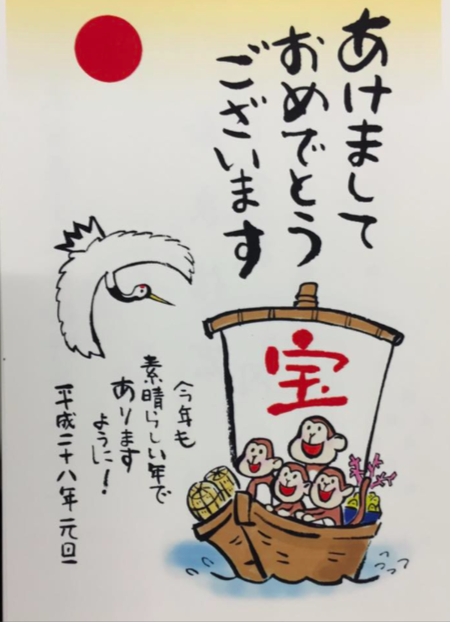 あけまして
おめでとう
ございます
宝
今年も
素晴らしい年で
あります
ように！
平成二十八年 元旦